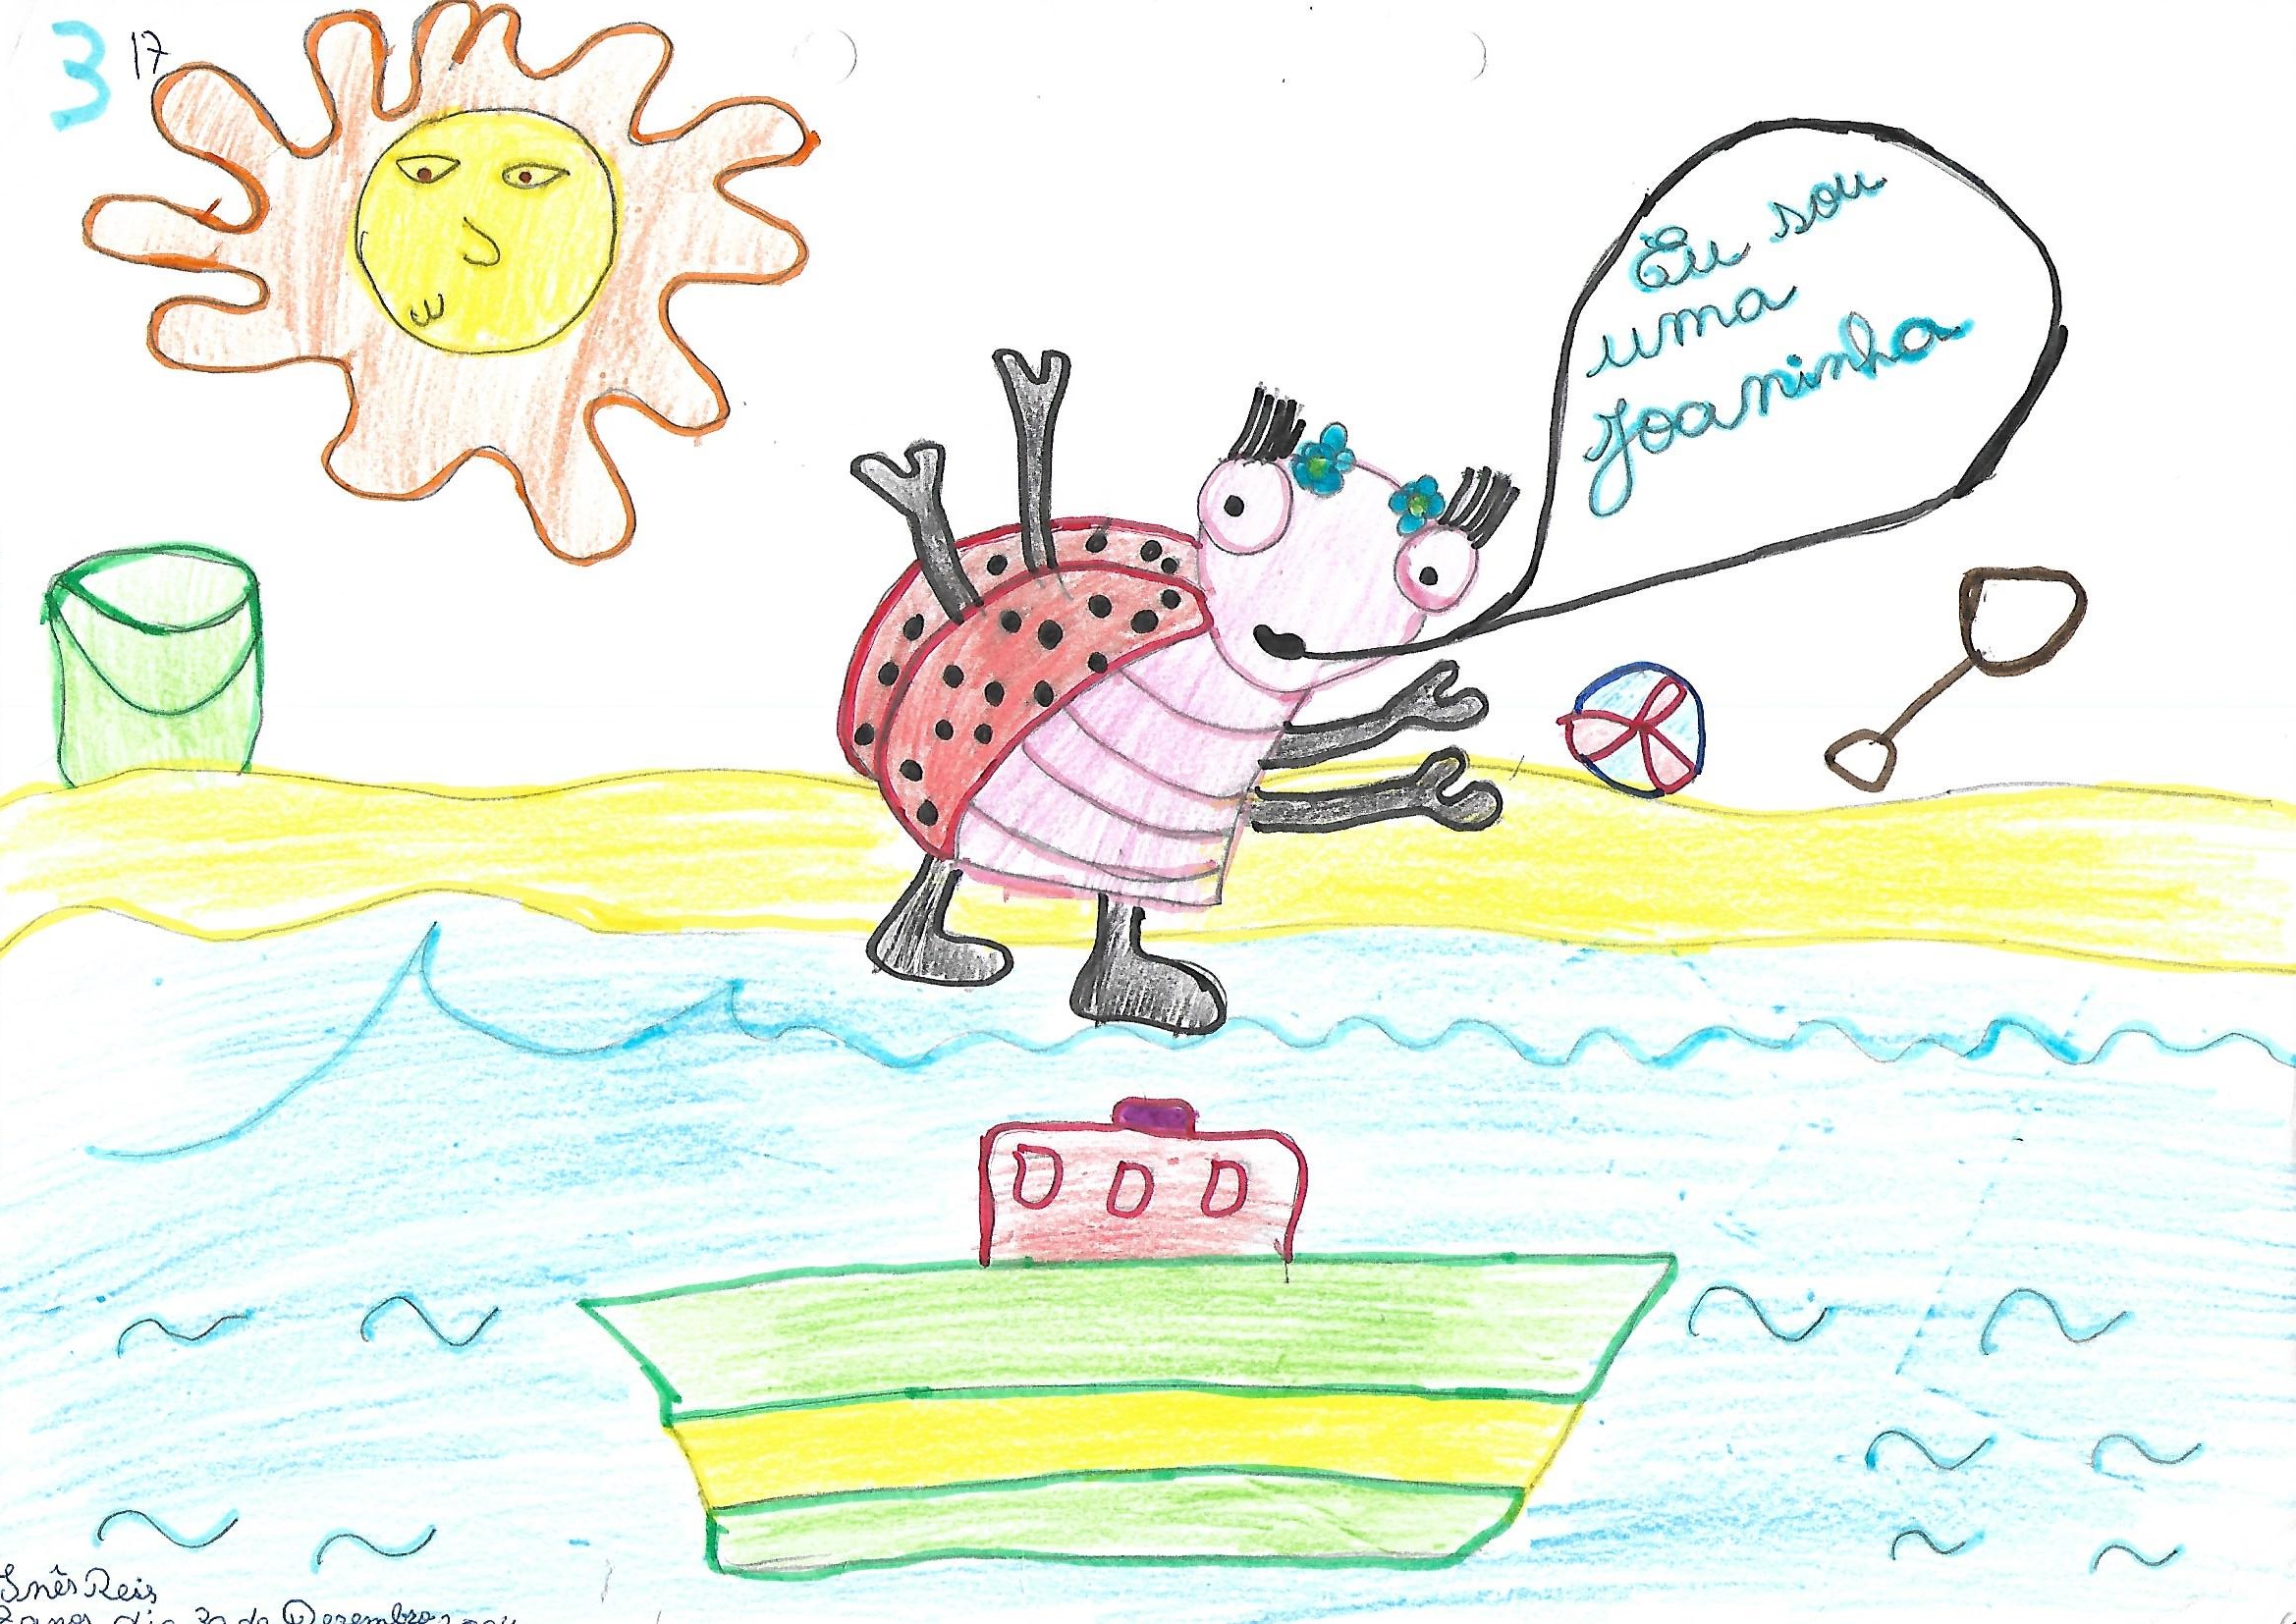 3 17
Eu sou
uma
Joaninha
Inês Reis
anos dia 30 de Dezembro